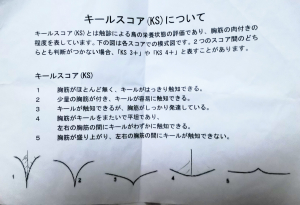 キールスコア(KS)について
キールスコア(KS)とは触診による鳥の栄養状態の評価であり、胸筋の肉付きの
程度を表しています。下の図は各スコアでの模式図です。2つのスコア間のどち
らとも判断がつかない場合、「KS 3+」や「KS 4+」と表すことがあります。
キールスコア(KS)
1 胸筋がほとんど無く、キールがはっきり触知できる。
2 少量の胸筋が付き、キールが容易に触知できる。
3 キールが触知できるが、胸筋がしっかり発達している。
4 胸筋がキールをまたいで平坦であり、
左右の胸筋の間にキールがわずかに触知できる。
5 胸筋が盛り上がり、左右の胸筋の間にキールが触知できない。
1
2
3
4
5